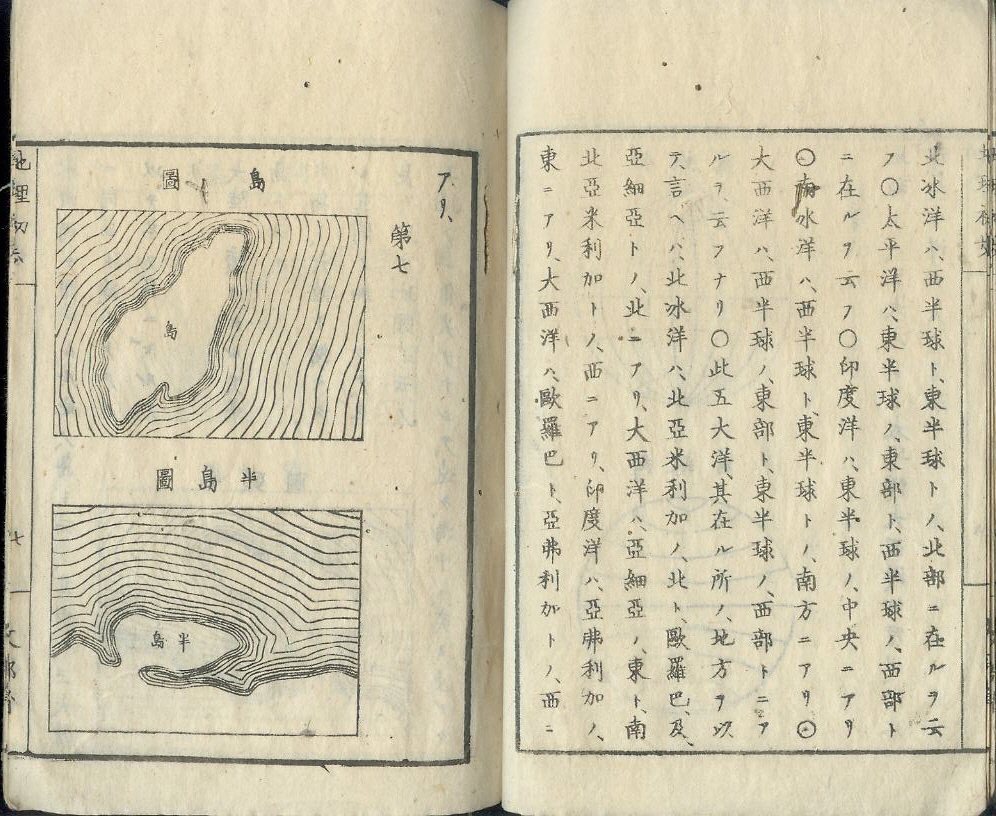 北冰洋ハ、西半球ト、東半球トノ、北部ニ在ルヲ云
フ〇太平洋ハ、東半球ノ、東部ト、西半球ノ、西部ト
ニ在ルヲ云フ〇印度洋ハ、東半球ノ、中央ニアリ
〇南冰洋ハ、西半球ト、東半球トノ、南方ニアリ〇
大西洋ハ、西半球ノ、東部ト、東半球ノ、西部トニア
ルヲ、云フナリ〇此五大洋、其在ル所ノ、地方ヲ以
テ、言ヘハ、北冰洋ハ、北亞米利加ノ、北ト、歐羅巴、及、
亞細亞トノ、北ニアリ、大西洋ハ、亞細亞ノ、東ト、南
北亞米利加トノ、西ニアリ、印度洋ハ、亞弗利加ノ、
東ニアリ、大西洋ハ、歐羅巴ト、亞弗利加トノ、西ニ
アリ、
第七
島圖
島
半島圖
半島
地理初歩
七